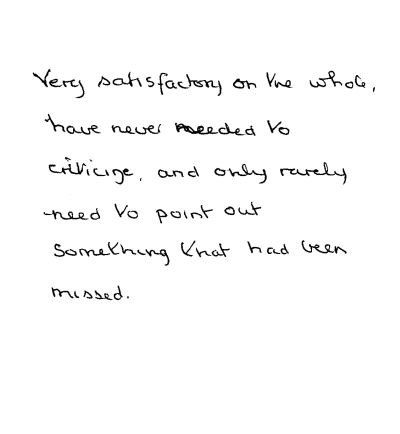 Very satisfactory on the whole,
have never needed to
criticize, and only rarely
need to point out
something that had been
missed.